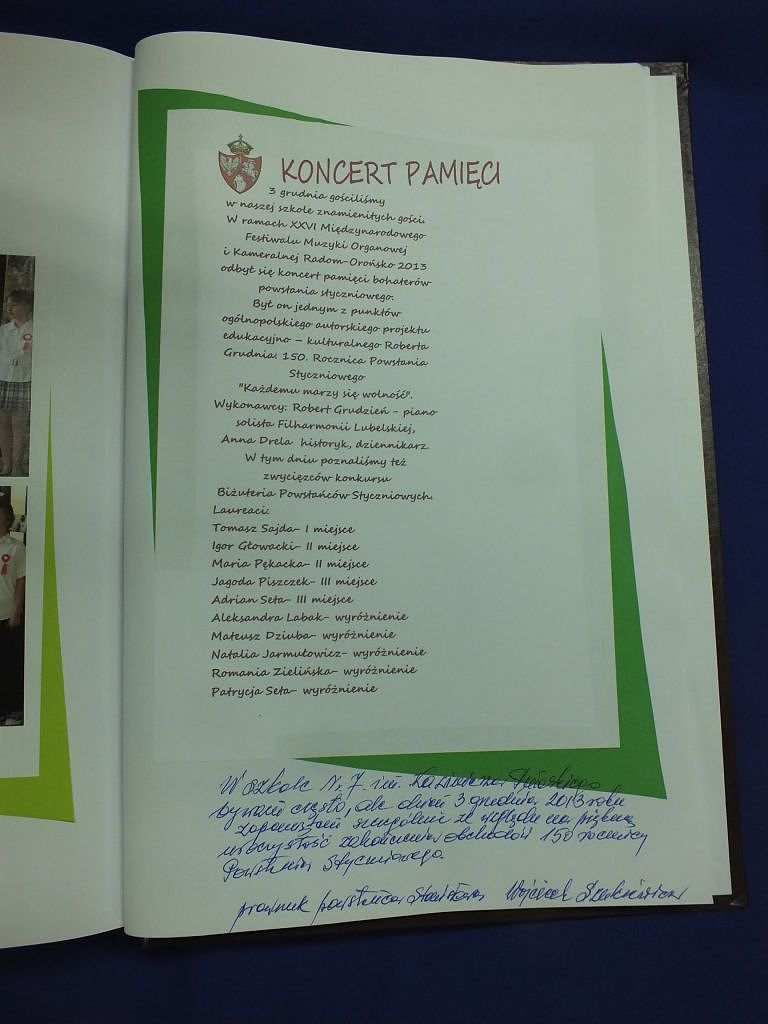 KONCERT PAMIĘCI
3 grudnia gościliśmy
w naszej szkole znamienitych gości.
W ramach XXVI Międzynarodowego
Festiwalu Muzyki Organowej
i Kameralnej Radom-Orońsko 2013
odbył się koncert pamięci bohaterów
powstania styczniowego.
Był on jednym z punktów
ogólnopolskiego autorskiego projektu
edukacyjno – kulturalnego Roberta
Grudnia: 150. Rocznica Powstania
Styczniowego
"Każdemu marzy się wolność".
Wykonawcy: Robert Grudzień - piano
solista Filharmonii Lubelskiej,
Anna Drela historyk, dziennikarz.
W tym dniu poznaliśmy też
zwycięzców konkursu
Biżuteria Powstańców Styczniowych.
Laureaci:
Tomasz Sajda- I miejsce
Igor Głowacki- II miejsce
Maria Pękacka- II miejsce
Jagoda Piszczek- III miejsce
Adrian Seta- III miejsce
Aleksandra Labak- wyróżnienie
Mateusz Dziuba- wyróżnienie
Natalia Jarmułowicz- wyróżnienie
Romania Zielińska- wyróżnienie
Patrycja Seta- wyróżnienie
W szkole Nr 7 im. Kazimierza
bywam często, ale dzień 3 grudnia 2013 roku
zapamiętam szczególnie ze względu na piękną
uroczystość zakończenia obchodów 150 rocznicy
Powstania Styczniowego.
prawnuk powstańca Stanisława Wojciech